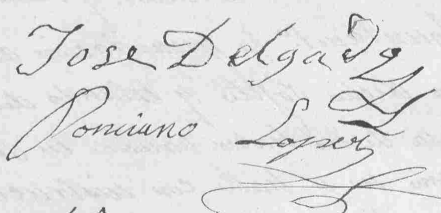 Jose Delgado
Ponciano Lopez